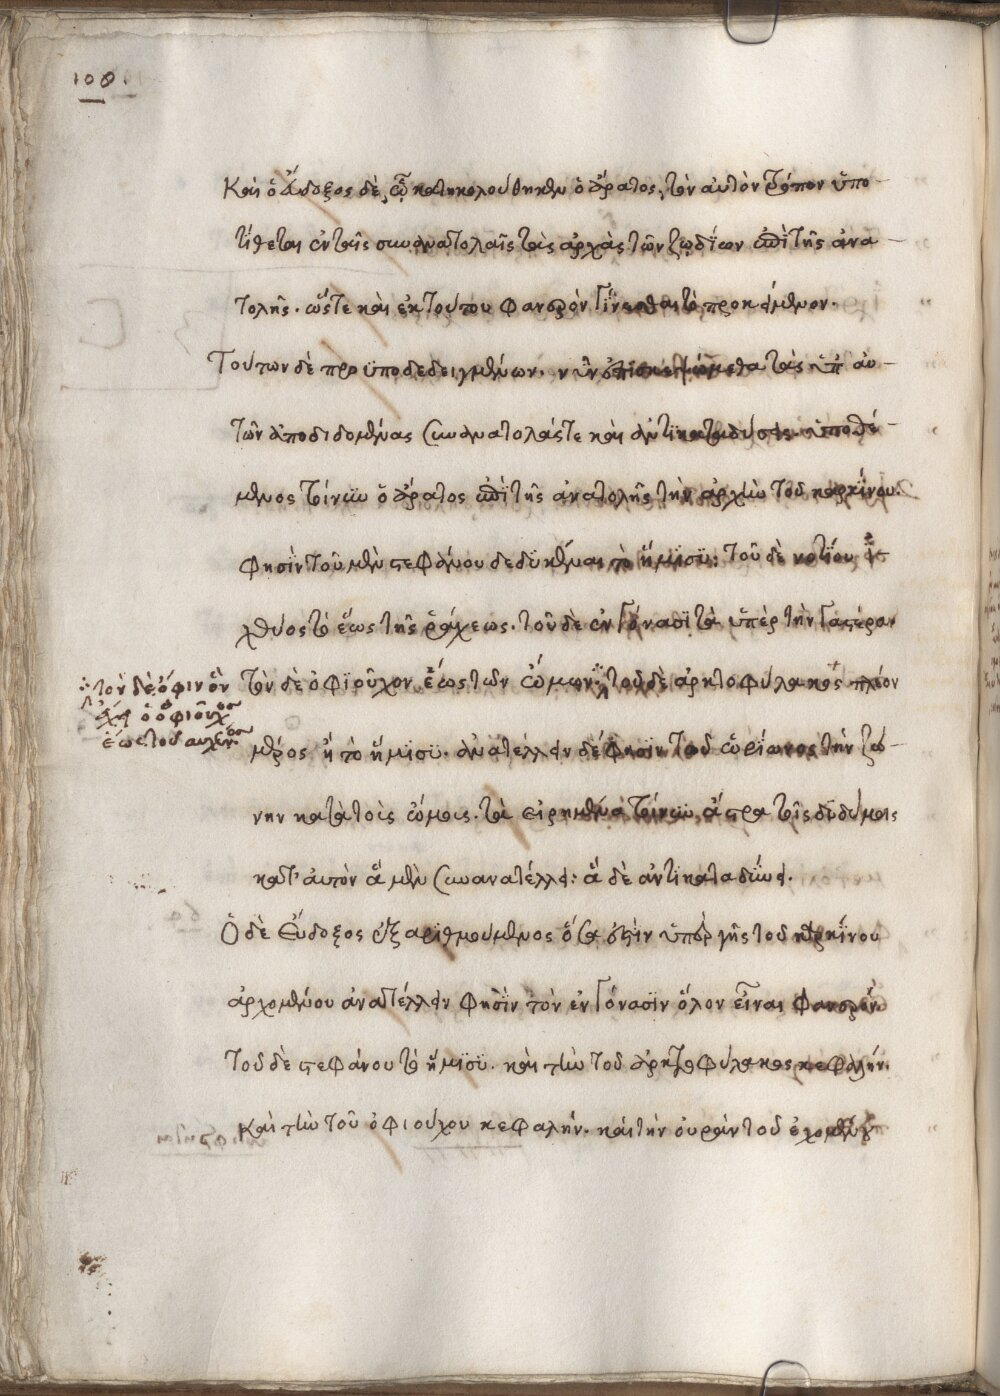 100
Καὶ ὁ Εὔδοξος δὲ, ᾧ κατηκολούθηκεν ὁ ἄρατος, τὸν αὐτὸν τρόπον ὑπο
τίθεται ἐν ταῖς συνανατολαῖς τὰς ἀρχὰς τῶν ζῳδΐων ἐπὶ τῆς ἀνα
τολῆς. ὥστε καὶ ἐκ τούτου φανερὸν γΐνεσθαι τὸ προκείμενον.
Τούτων δὲ προϋποδεδειγμένων. νῦν ἐπισκεψώμεθα τὰς ὑπ' αυ
τῶν ἀποδιδομένας συνανατολάς τε καὶ ἀντϊκαταδύσεις. ὑποθέ
μενος τοίνυν ὁ ἄρατος ἐπὶ τῆς ἀνατολῆς τὴν ἀρχὴν τοῦ καρκΐνου.
φησὶν τοῦ μὲν στεφάνου δεδϋκέναι τὸ ἥμϊσϋ: τοῦ δὲ νοτΐου ἰ
χθύος τὸ ἕως τῆς ῥάχεως. τοῦ δὲ ἐν γόνασϊ τὰ ὑπὲρ τὴν γαστέρα.
τὸν δὲ ὀφϊοῦχον ἕως τῶν ὤμων. τοῦ δὲ ἀρκτοφύλακος πλέον
τὸν δὲ ὄφιν ὃν
ἔχει ὁ ὀφιοῦχος
ἕως τοῦ αυχένος
μέρος ἢ τὸ ἥμισϋ. ἀνατέλλειν δέ φησϊν τοῦ ὠρίωνος τὴν ζώ
νην κατὰ τοὺς ὤμους. τὰ εἰρημένα τοίνϋν ἄστρα τοῖς διδύμοις
κατ' αὐτὸν ἃ μὲν συνανατέλλει: ἃ δὲ ἀντικαταδύνει.
Ὁ δὲ Εὔδοξος ἐξαριθμούμενος ὅσα ἐστὶν ὑπὲρ γῆς τοῦ καρκΐνου
ἀρχομένου ἀνατέλλειν φησῒν τὸν ἐν γόνασϊν ὅλον εἶναι φανερὸν.
τοῦ δὲ στεφάνου τὸ ἥμϊσϋ. καὶ τὴν τοῦ ἀρκτοφύλακος κεφαλήν.
καὶ τὴν τοῦ ὀφιούχου κεφαλήν. καὶ τὴν ουρὰν τοῦ ἐχομένου